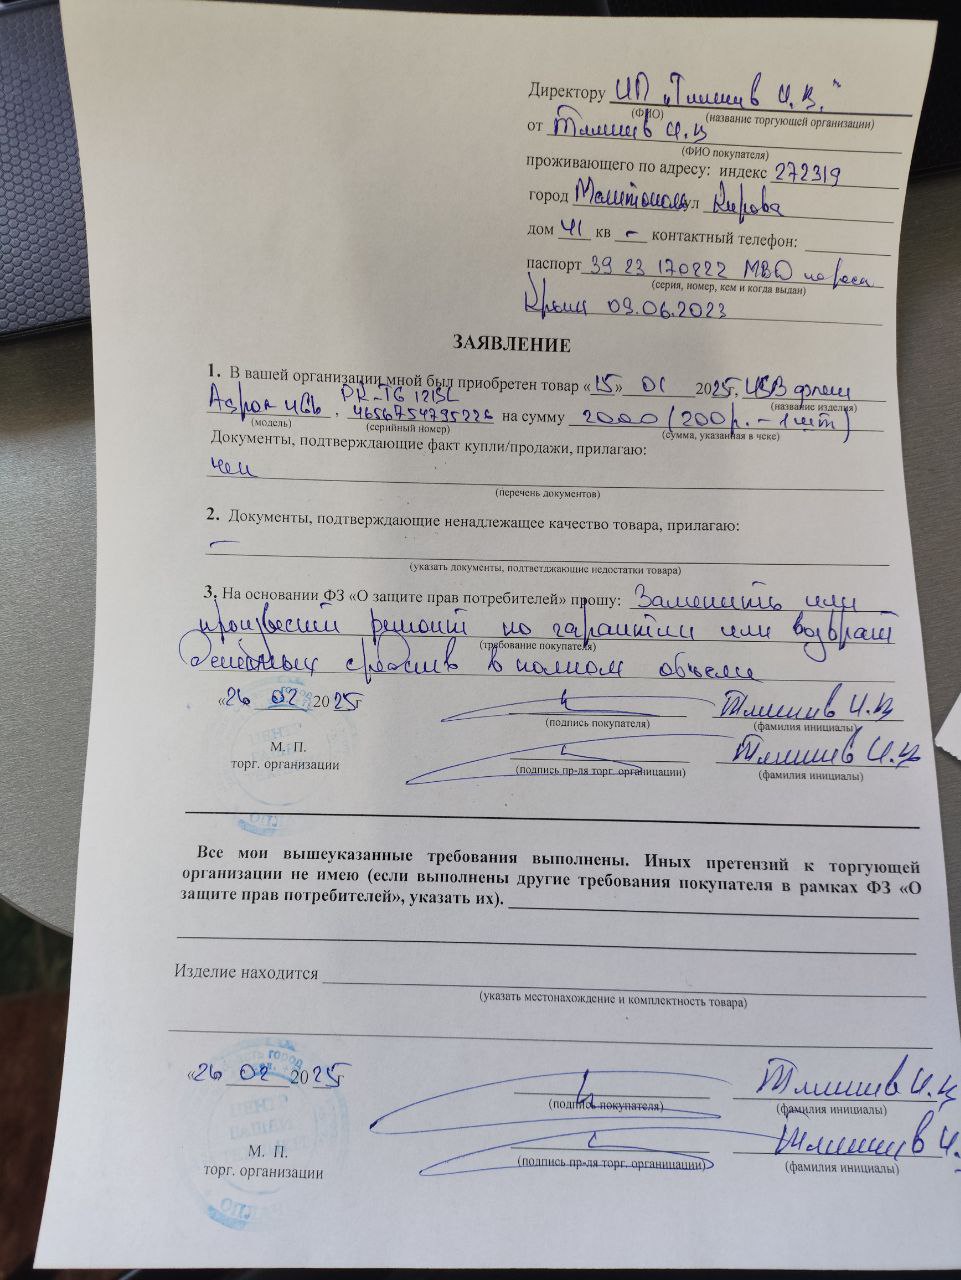 Директору ИП "Тлишив И.Ц."
(ФИО) (название торгующей организации)
от Тлишив И.Ц
(ФИО покупателя)
проживающего по адресу: индекс 272319
город ул Кирова
дом 41 кв – контактный телефон:
паспорт 39 23 170222 МВД по респ
(серия, номер, кем и когда выдан)
Крым 09.06.2023
ЗАЯВЛЕНИЕ
1. В вашей организации мной был приобретен товар «15» 01 2025г, USB флеш
(название изделия)
PR-TG 121SL
, 4656754795226 на сумму 2000 (200р. – 1 шт)
(модель) (серийный номер) (сумма, указанная в чеке)
Документы, подтверждающие факт купли/продажи, прилагаю:
чек
(перечень документов)
2. Документы, подтверждающие ненадлежащее качество товара, прилагаю:
–
(указать документы, подтветджающие недостатки товара)
3. На основании ФЗ «О защите прав потребителей» прошу: Заменить или
произвести ремонт по гарантии или возврат
(требование покупателя)
денежных средств в полном объеме
«26 02 2025г Тлишив И.Ц
(подпись покупателя) (фамилия инициалы)
М. П. Тлишив И.Ц
торг. организации (подпись пр-ля торг. органицации) (фамилия инициалы)
Все мои вышеуказанные требования выполнены. Иных претензий к торгующей
организации не имею (если выполнены другие требования покупателя в рамках ФЗ «О
защите прав потребителей», указать их).
Изделие находится
(указать местонахождение и комплектность товара)
«26 02 2025г Тлишив И.Ц
(подпись покупателя) (фамилия инициалы)
Тлишив И.
М. П.
торг. организации (подпись пр-ля торг. органицации) (фамилия инициалы)